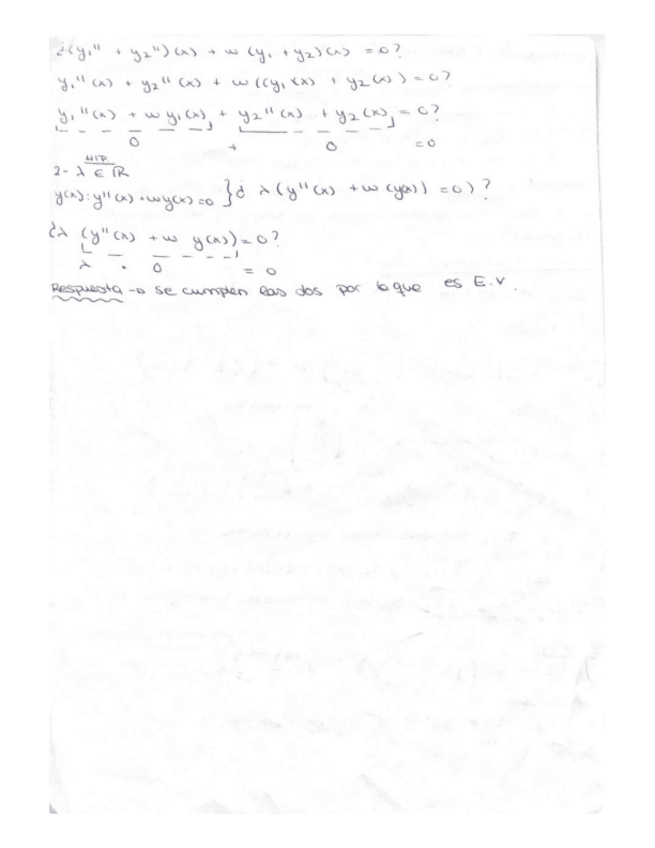 ¿(y₁'' + y₂'')(x) + w (y₁ + y₂)(x) = 0?
y₁''(x) + y₂''(x) + w ((y₁(x) + y₂(x)) = 0?
y₁''(x) + w y₁(x) + y₂''(x) + y₂(x) = 0?
0 + 0 = 0
HIP.
2- λ ∈ ℝ
y(x): y''(x) + w y(x) = 0 } ¿ λ (y''(x) + w (y(x)) = 0) ?
¿λ (y''(x) + w y(x)) = 0?
λ · 0 = 0
Respuesta → se cumplen las dos por lo que es E.V.